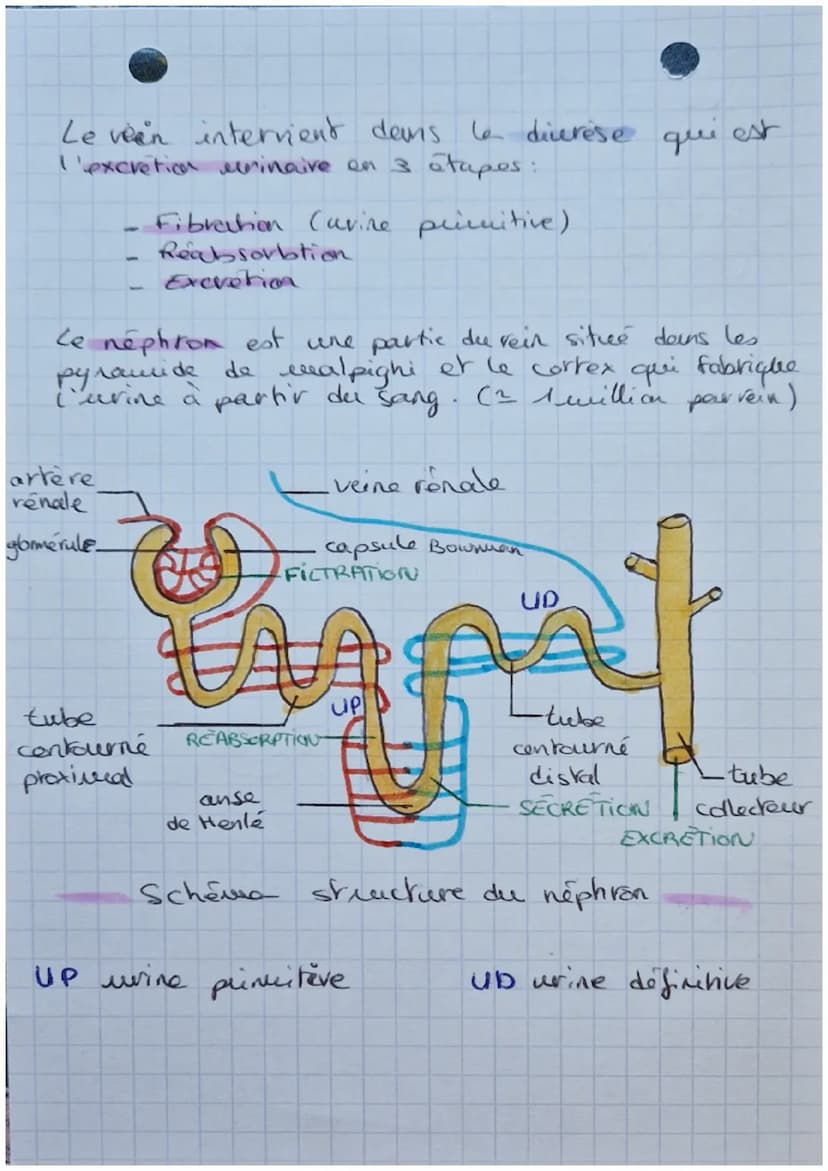 Le rein intervient dans la diurèse qui est
l'excrétion urinaire en 3 étapes :
- Filtration (urine primitive)
- Réabsorbtion
- Excrétion
Le néphron est une partie du rein situé dans les
pyramide de malpighi et le cortex qui fabrique
l'urine à partir du sang. (≃ 1 million par rein)
artère
rénale
veine rénale
glomérule
capsule Bowman
FILTRATION
UD
UP
tube
contourné
proximal
RÉABSORPTION
tube
contourné
distal
anse
de Henlé
SÉCRÉTION
tube
collecteur
EXCRÉTION
Schéma structure du néphron
UP urine primitive
UD urine définitive